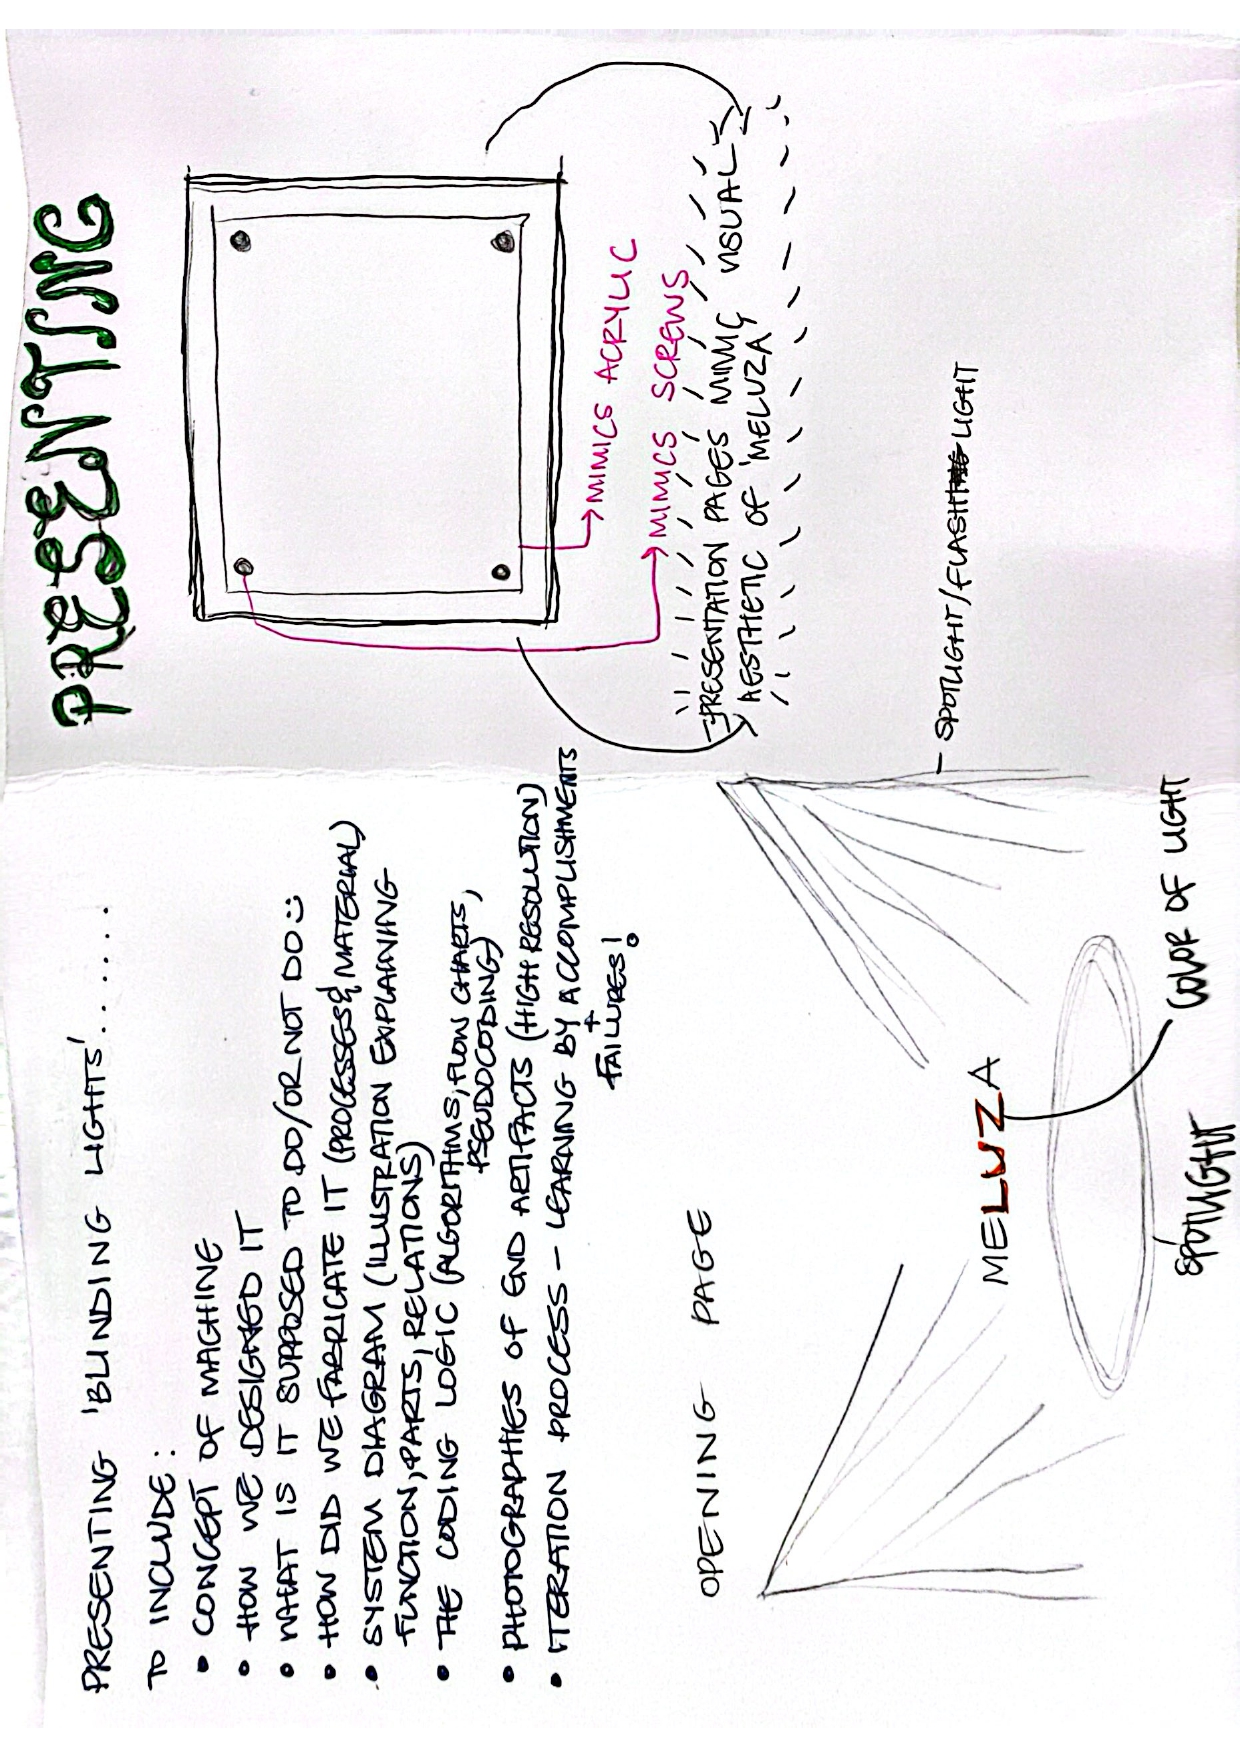 PRESENTING
PRESENTING 'BLINDING LIGHTS'......
TO INCLUDE:
• CONCEPT OF MACHINE
• HOW WE DESIGNED IT
• WHAT IS IT SUPPOSED TO DO/OR NOT DO :)
• HOW DID WE FABRICATE IT (PROCESSES & MATERIAL)
• SYSTEM DIAGRAM (ILLUSTRATION EXPLAINING
FUNCTION, PARTS, RELATIONS)
• THE CODING LOGIC (ALGORITHMS, FLOW CHARTS,
PSEUDOCODING)
• PHOTOGRAPHIES OF END ARTIFACTS (HIGH RESOLUTION)
• ITERATION PROCESS - LEARNING BY ACCOMPLISHMENTS
+
FAILURES!
→ MIMICS ACRYLIC
→ MIMICS SCREWS
PRESENTATION PAGES MIMIC VISUAL
AESTHETIC OF 'MELUZA'
OPENING PAGE
- SPOTLIGHT/FLASHLIGHT
MELUZA
SPOTLIGHT
COLOR OF LIGHT